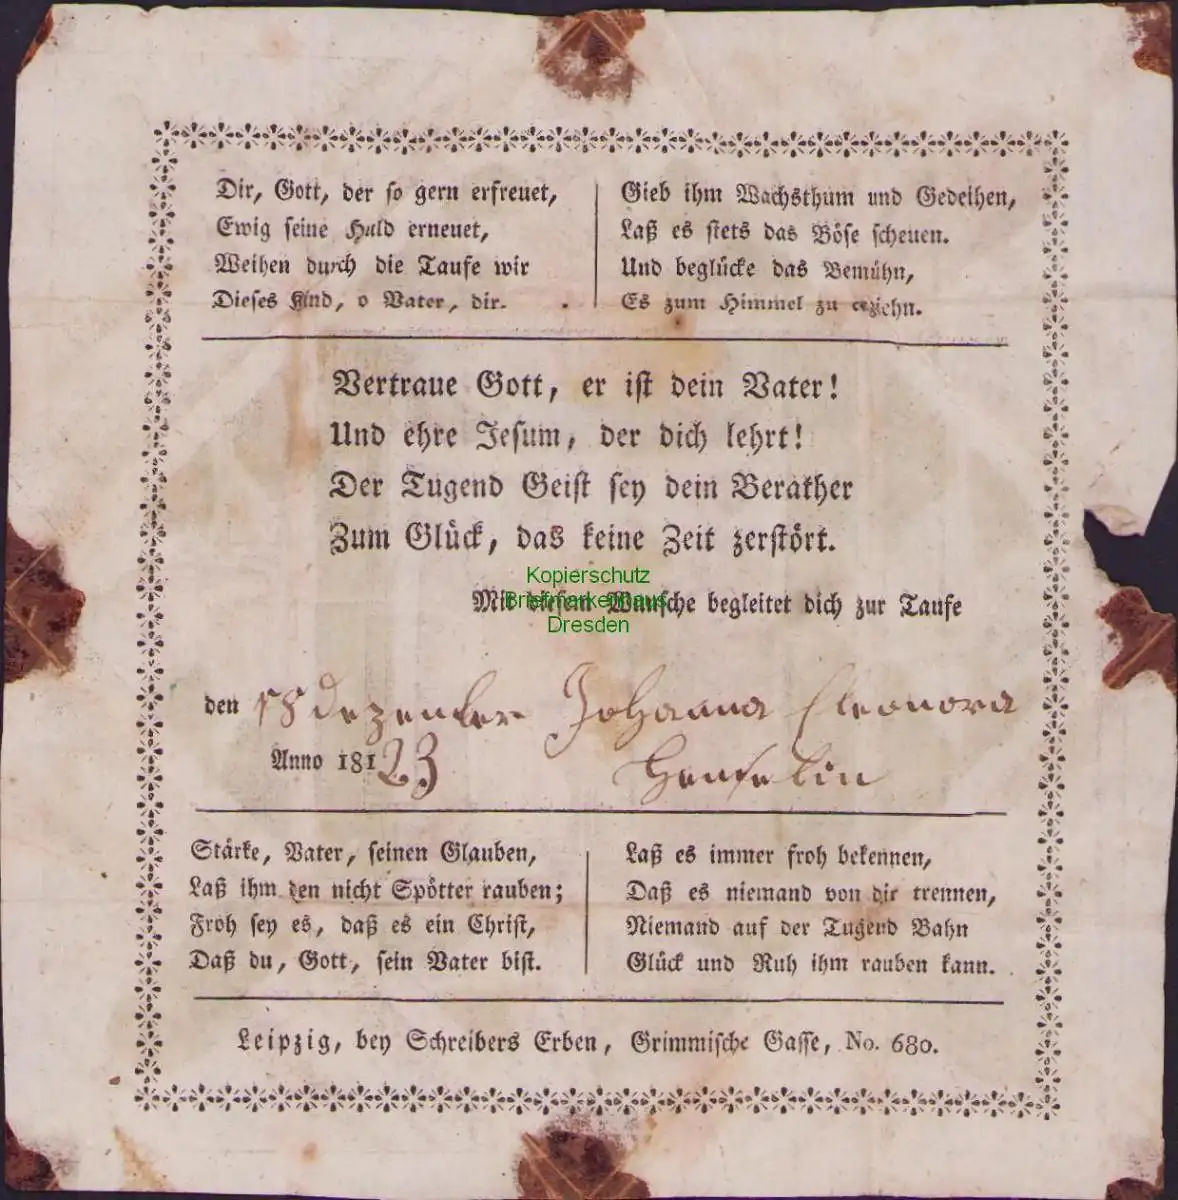 Dir, Gott, der so gern erfreuet,
Ewig seine Huld erneuet,
Weihen durch die Taufe wir
Dieses Kind, o Vater, dir.
Gieb ihm Wachsthum und Gedeihen,
Laß es stets das Böse scheuen.
Und beglücke das Bemühn,
Es zum Himmel zu erziehn.
Vertraue Gott, er ist dein Vater!
Und ehre Jesum, der dich lehrt!
Der Tugend Geist sey dein Berather
Zum Glück, das keine Zeit zerstört.
Kopierschutz
Briefmarkenhaus
Dresden
Mit diesem Wunsche begleitet dich zur Taufe
den 18 dezember Johanna Eleonora
Anno 18123 Henselin
Stärke, Vater, seinen Glauben,
Laß ihm den nicht Spötter rauben;
Froh sey es, daß es ein Christ,
Daß du, Gott, sein Vater bist.
Laß es immer froh bekennen,
Daß es niemand von dir trennen,
Niemand auf der Tugend Bahn
Glück und Ruh ihm rauben kann.
Leipzig, bey Schreibers Erben, Grimmische Gasse, No. 680.